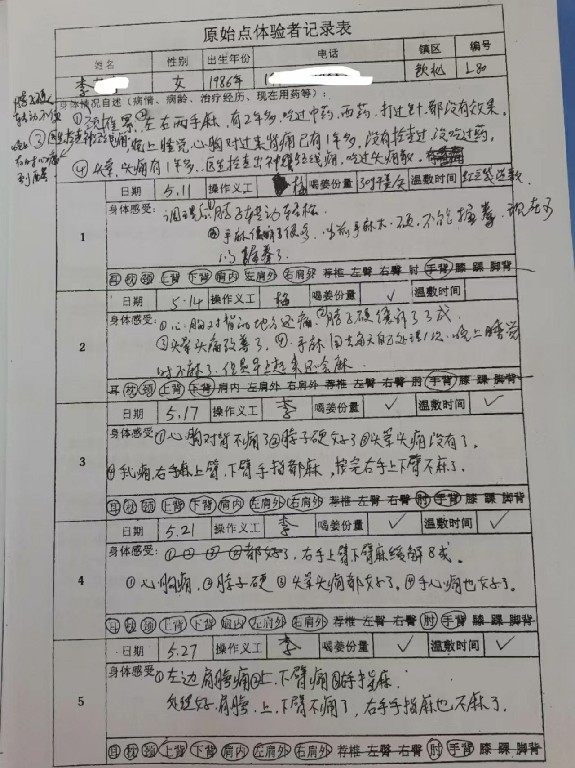 原始点体验者记录表
姓名 性别 出生年份 电话 镇区 编号
李 女 1986年 钦北 L80
身体情况自述（病情、病龄、治疗经历、现在用药等）：
①颈椎累，②左右两手麻，有2年多，吃过中药，西药，打过针都没有效果。
晚上睡觉，心胸对过来背痛已有1年多，没有检查过，没吃过药。
④头晕，头痛有1年多，医生检查出神经线痛，吃过头痛散。
日期 5.11 操作义工 梅 喝姜份量 温敷时间
身体感受：调理后脖子转动轻松
手麻，当前手麻木，硬，不能握拳，现在可
以握拳了。
1
耳 枕 颈 上背 下背 肩内 左肩外 右肩外 荐椎 左臀 右臀 肘 手背 膝 踝 脚背
日期 5.14 操作义工 梅 喝姜份量 ✓ 温敷时间
身体感受：①心胸对背动地方还痛，②脖子硬缓解了3成
③头晕头痛改善了，④手麻 晚上睡觉
时不麻了，但是早上起来还会麻。
2
耳 枕 颈 上背 下背 肩内 左肩外 右肩外 荐椎 左臀 右臀 肘 手背 膝 踝 脚背
日期 5.17 操作义工 李 喝姜份量 ✓ 温敷时间 ✓
身体感受：①心胸对背不痛了②脖子硬好了③头晕头痛没有了。
右手麻上臂，下臂手指都麻，按完右手上下臂不麻了。
3
耳 枕 颈 上背 下背 肩内 左肩外 右肩外 荐椎 左臀 右臀 肘 手背 膝 踝 脚背
日期 5.21 操作义工 李 喝姜份量 ✓ 温敷时间 ✓
身体感受：① ② ③ ④都好了，右手上臂下臂麻缓解8成。
①心胸痛，②脖子硬 ③头晕头痛都好了。④手心痛也好了。
4
耳 枕 颈 上背 下背 肩内 左肩外 右肩外 荐椎 左臀 右臀 肘 手背 膝 踝 脚背
日期 5.27 操作义工 李 喝姜份量 ✓ 温敷时间 ✓
身体感受：①左边肩膀痛②上、下臂痛③右手指麻。
处理好肩膀，上、下臂不痛了，右手手指麻也不麻了。
5
耳 枕 颈 上背 下背 肩内 左肩外 右肩外 荐椎 左臀 右臀 肘 手背 膝 踝 脚背